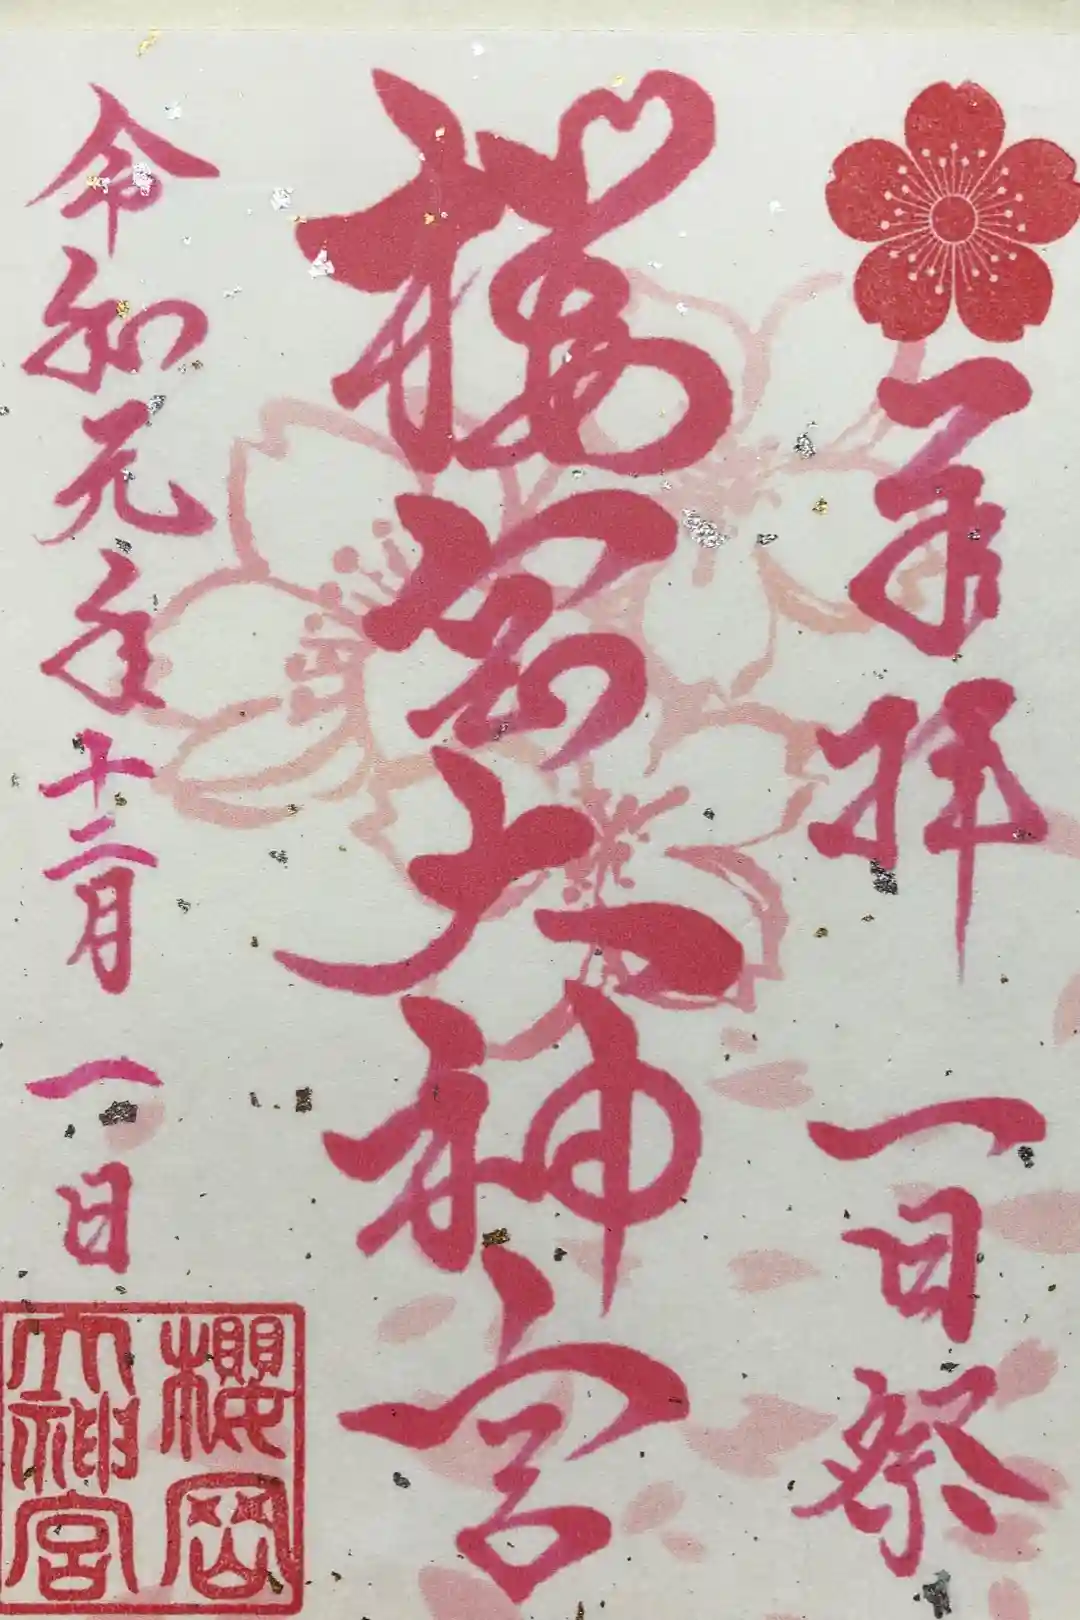 奉拝
一日祭
櫻岡大神宮
令和元年十二月一日
櫻岡
大神宮